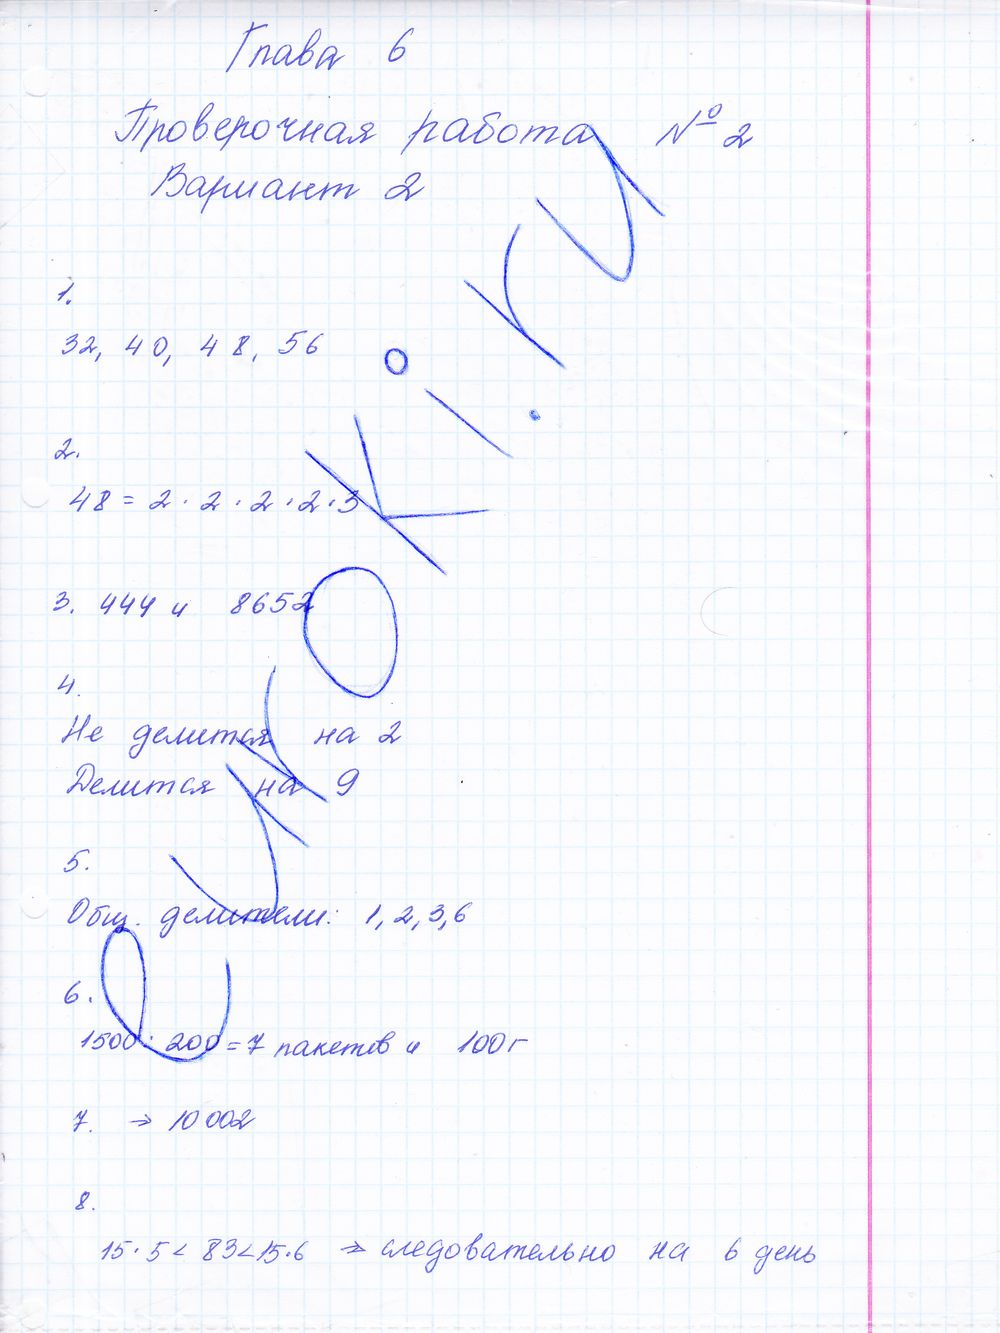 Глава 6
Проверочная работа № 2
Вариант 2
1.
32, 40, 48, 56
2.
48 = 2 · 2 · 2 · 2 · 3
3. 444 и 8652
4.
Не делится на 2
Делится на 9
5.
Общ. делители: 1, 2, 3, 6
6.
1500 : 200 = 7 пакетов и 100г
7. → 10 002
8.
15 · 5 < 83 < 15 · 6 → следовательно на 6 день
eurokioki.ru